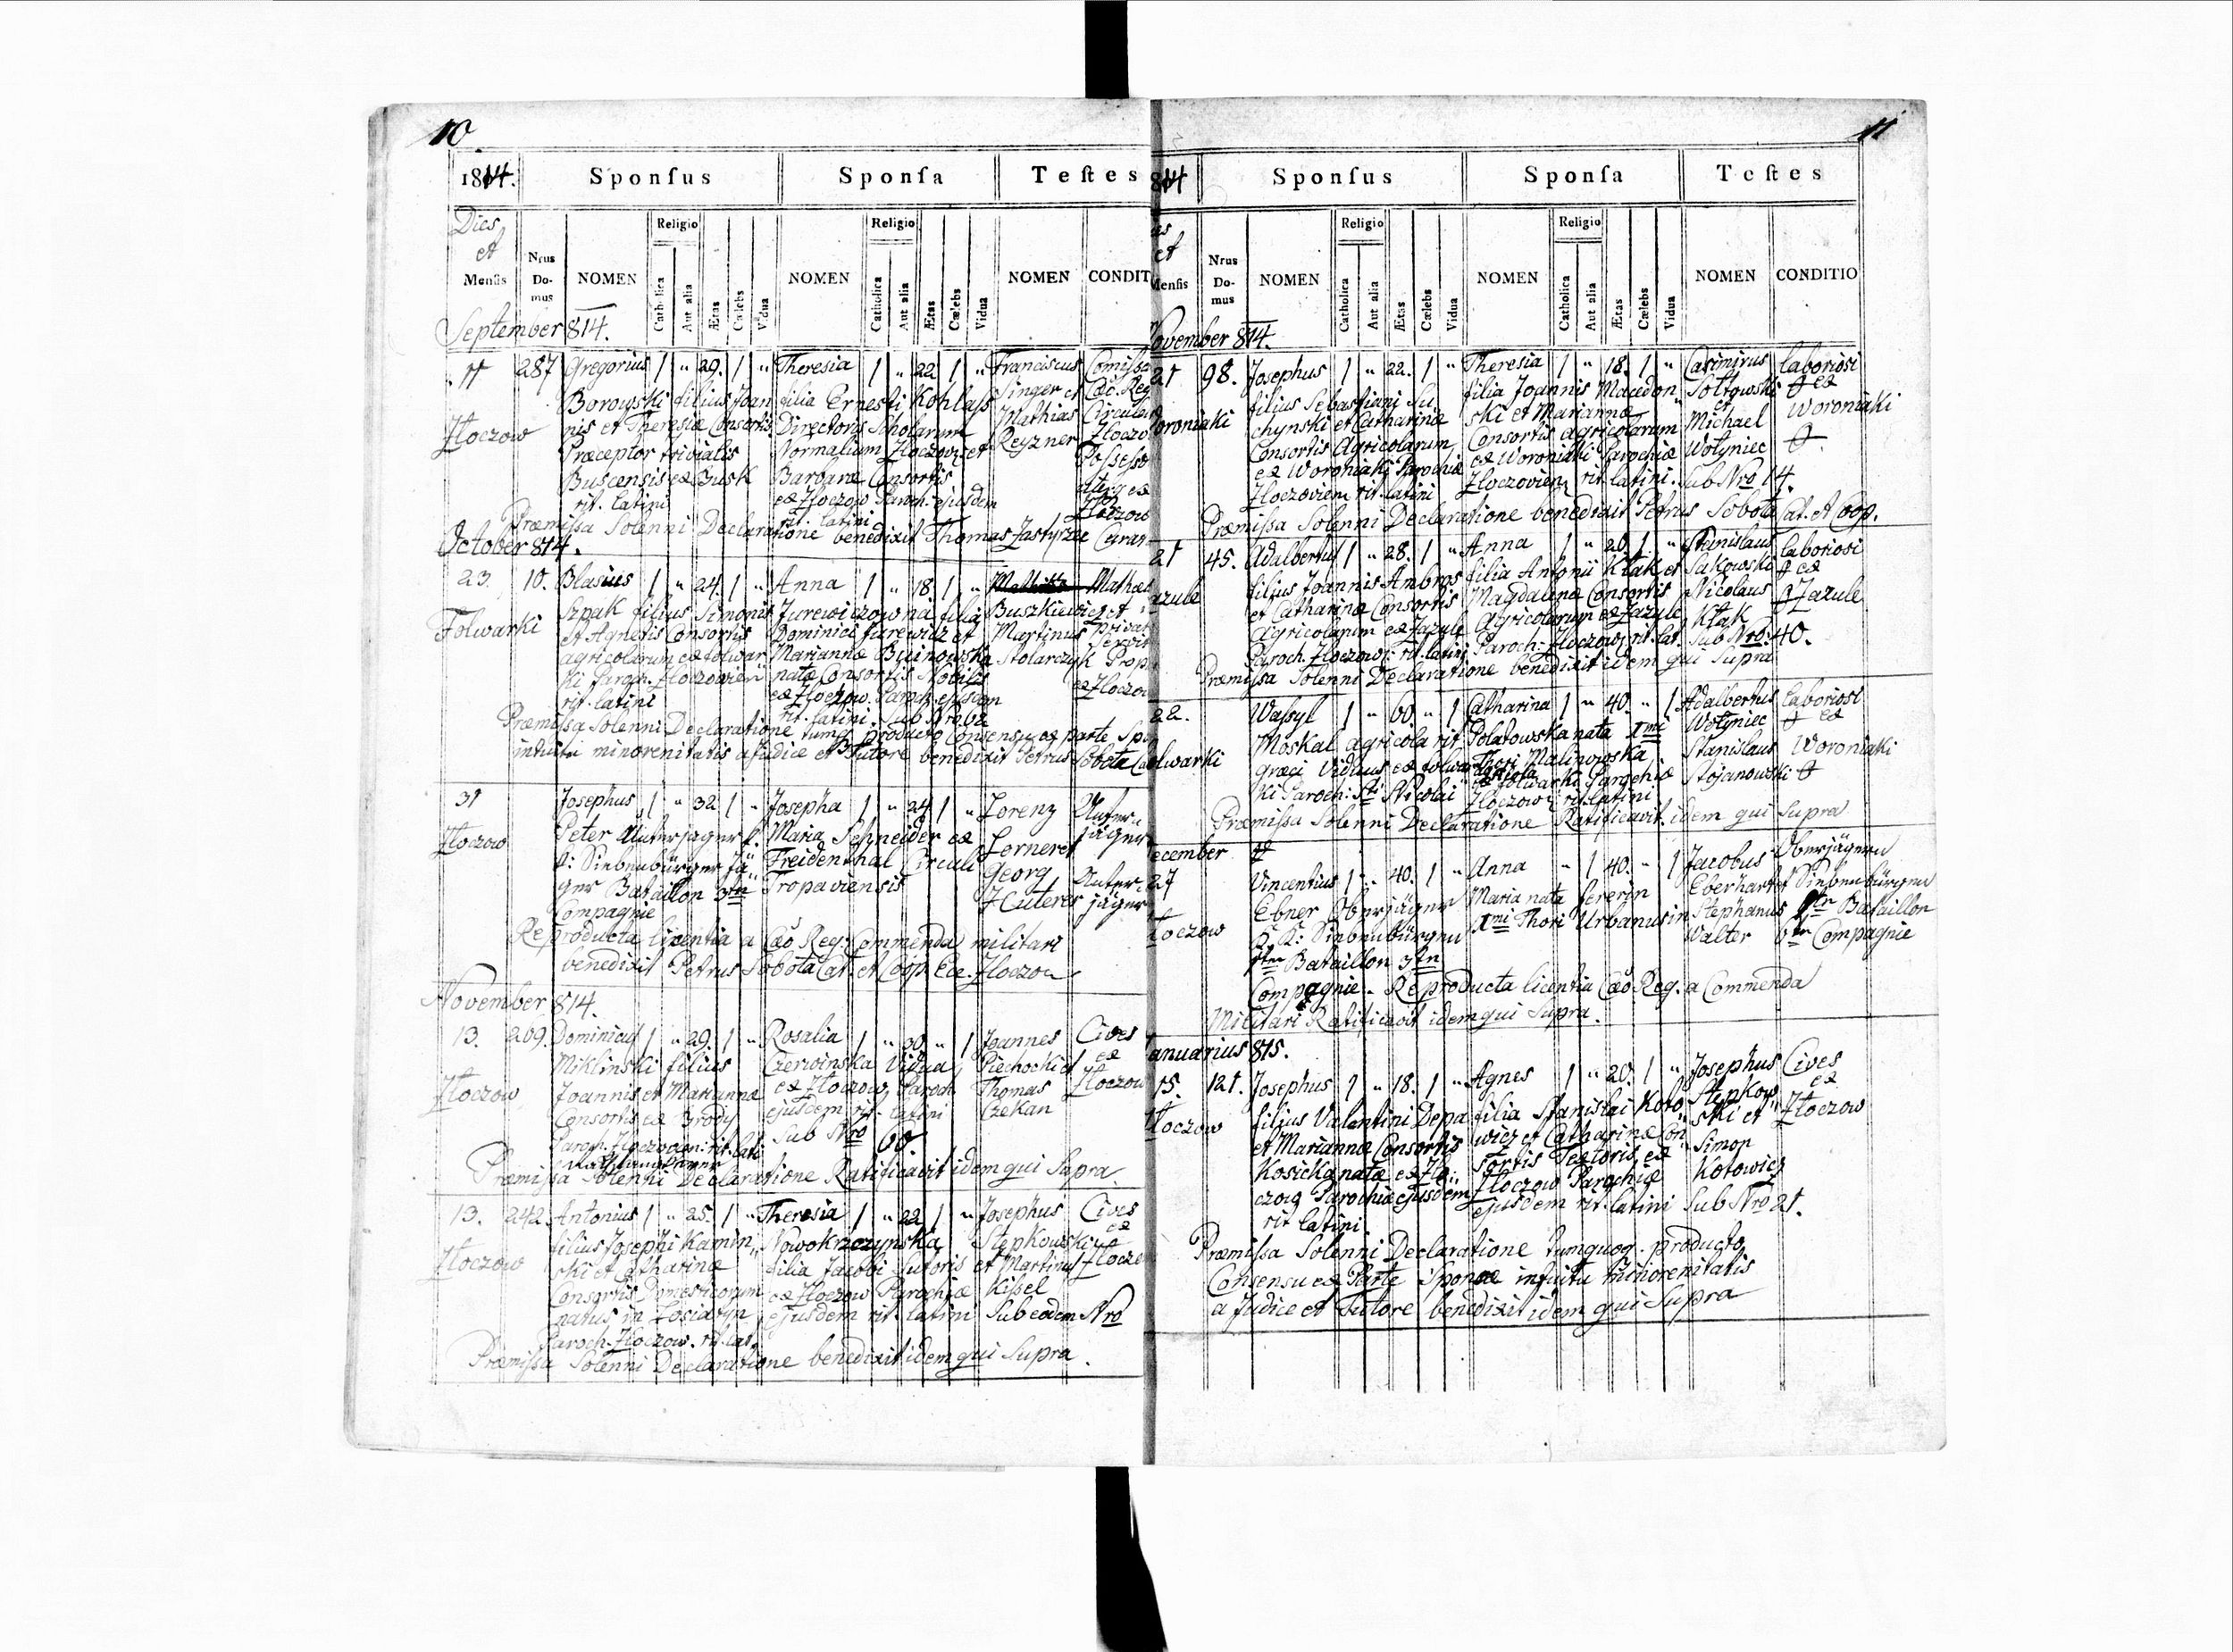 10.
1814. Sponsus Sponsa Testes
Dies et Mensis Nrus Domus NOMEN Religio Catholica Aut alia Ætas Cælebs Vidua NOMEN Religio Catholica Aut alia Ætas Cælebs Vidua NOMEN CONDIT
September 814.
11 287 Gregorius 1 " 29. 1 " Theresia 1 " 22 1 " Franciscus
Borowski filius Joan filia Ernesti Kohlass Singer et Cæ. Reg
Złoczow nis et Theresiæ Consortis Directoris Scholarum Mathias
Præceptor trivialis Normalium Złoczov. et Reyzner Złoczo
Buscensis ex Busk Barbaræ Consortis
rit. latini ex Złoczow Paroch. ejusdem Złoczow
rit. latini
Præmissa Solenni Declaratione benedixit Thomas
October 814.
23. 10. Blasius 1 " 24. 1 " Anna 1 " 18. 1 "
Szpak filius Simonis Jurewiczowna filia Buszkiewicz et
Folwarki et Agnetis Consortis Dominici Jurewicz et Martinus
agricolarum ex folwar Mariannæ Stolarczyk
ki Paroch. Złoczovien natæ Consortis Nobilis
rit. latini ex Złoczow Paroch. ejusdem ex Złoczow
rit. latini. Sub Nro
Præmissa Solenni Declaratione tumq producto Consensu ex parte Spo
intuitu minorenitatis a Judice et Tutore benedixit Petrus Sobota
31 Josephus 1 " 32. 1 " Josepha 1 " 24 1 " Lorenz Unter
Złoczow Peter Unterjäger k. Maria Schneider ex Lerner et jäger
k: Siebenbürger Jä Freidenthal Circuli Georg Unter
ger Bataillon 3tn Tropaviensis jäger
Compagnie
Reproducta licentia a Cæo Reg. Commenda militari
benedixit Petrus Sobota Cat. et Coop. Ecc. Złoczow
November 814.
13. 209. Dominicus 1 " 29. 1 " Rosalia 1 " 30. " 1 Joannes Cives
Miklinski filius Czerwinska Vidua Piechocki et ex
Złoczow Joannis et Mariannæ ex Złoczow Paroch. Thomas Złoczow
Consortis ex Brody ejusdem rit. latini Czekan
Paroch. Złoczovien. rit. lati. Sub Nro 60.
Præmissa Solenni Declaratione Ratificavit idem qui Supra.
13. 242. Antonius 1 " 25. 1 " Theresia 1 " 22 1 " Josephus Cives
filius Josephi Kamin Nowokrzczynska Stepkowski ex
Złoczow ski et Catharinæ filia Jacobi Sutoris et Martinus Złocze
Consortis Domesticorum ex Złoczow Parochiæ Kissel
natus in ejusdem rit. latini Sub eodem Nro
Paroch. Złoczow. rit. lat.
Præmissa Solenni Declaratione benedixit idem qui Supra.
11
814 Sponsus Sponsa Testes
et Mensis Nrus Domus NOMEN Religio Catholica Aut alia Ætas Cælebs Vidua NOMEN Religio Catholica Aut alia Ætas Cælebs Vidua NOMEN CONDITIO
November 814.
21 98. Josephus 1 " 22. 1 " Theresia 1 " 18. 1 " Casimirus Laboriosi
filius Sebastiani Su filia Joannis Macedon Soltowski ex
oroniaki chynski et Catharinæ ski et Mariannæ et Woroniaki
Consortis Agricolarum Consortis agricolarum Michael
ex Woroniaki Parochiæ ex Woroniaki Parochiæ Wołyniec
Złoczovien rit. latini Złoczovien rit. latini. Sub Nro 14.
Præmissa Solenni Declaratione benedixit Petrus Sobota Cat. et Coop.
21 45. Adalbertus 1 " 28. 1 " Anna 1 " 20. 1 " Stanislaus Laboriosi
filius Joannis Ambros filia Antonii Kłak et Sukowski ex
azule et Catharinæ Consortis Magdalenæ Consortis Nicolaus Jazule
agricolarum ex Jazule Agricolarum ex Jazule Kłak
Paroch. Złoczow: rit. latini Paroch: Złoczow: rit. lat. Sub Nro: 40.
Præmissa Solenni Declaratione benedixit idem qui Supra
22. Wassyl 1 " 60. " 1 Catharina 1 " 40. " 1 Adalbertus Laboriosi
Moskal agricola rit. Polatowska nata 1mi Wołyniec ex
olwarki græci Viduus ex folwar Thori Malinowska Stanislaus Woroniaki
ki Paroch: Sti Nicolai ex folwarki Parochiæ Stojanowski
Złoczow: rit. latini
Præmissa Solenni Declaratione Ratificavit idem qui Supra
ecember
27 Vincentius 1 " 40. 1 " Anna " 1 40. " 1 Jacobus Oberjägern
Ebner Oberjäger Maria nata Eberhart et Siebenbürgen
łoczow k. k: Siebenbürgen 1mi Thori Urbanus in Stephanus Bataillon
Bataillon 3tn Walter 6tn Compagnie
Compagnie. Reproducta licentia Cæo Reg. a Commenda
Militari Ratificavit idem qui Supra.
anuarius 815.
15. 121. Josephus 1 " 18. 1 " Agnes 1 " 20. 1 " Josephus Cives
łoczow filius Valentini Depa filia Stanislai Koto Stepkow ex
et Mariannæ Consortis wicz et Catharinæ Con ski et Złoczow
Kosicka natæ ex Zło sortis Textoris ex Simon
czow Parochiæ ejusdem Złoczow Parochiæ Kotowicz
rit latini ejusdem rit. latini Sub Nro 21.
Præmissa Solenni Declaratione tumquoq. producto
Consensu ex Parte Sponsæ intuitu minorenitatis
a Judice et Tutore benedixit idem qui Supra